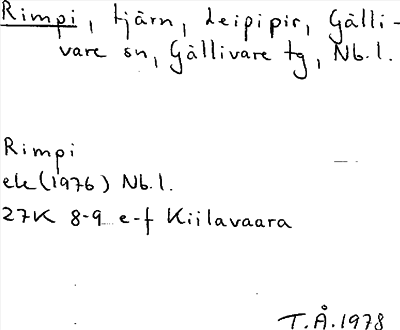 Rimpi, tjärn, Leipipir, Gälli-
vare sn, Gällivare tg, Nb.l.
Rimpi
ek(1976) Nb.l.
27K 8-9 e-f Kiilavaara
T.Å.1978